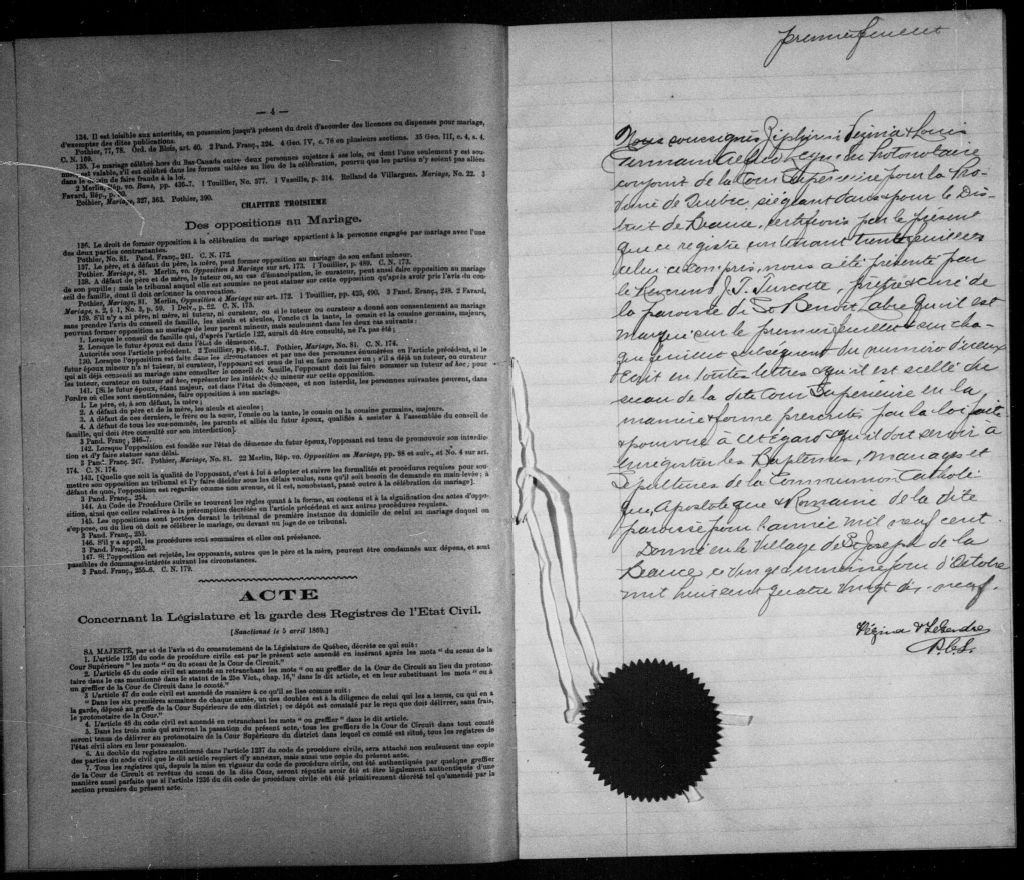 — 4 —
134. Il est loisible aux autorités, en possession jusqu'à présent du droit d'accorder des licences ou dispenses pour mariage,
d'exempter des dites publications.
Pothier, 77, 78. Ord. de Blois, art. 40. 2 Pand. Franç., 324. 4 Geo. IV, c. 76 en plusieurs sections. 35 Geo. III, c. 4, s. 4.
C. N. 169.
135. Le mariage célébré hors du Bas-Canada entre deux personnes sujettes à ses lois, ou dont l'une seulement y est sou-
mise, est valable, s'il est célébré dans les formes usitées au lieu de la célébration, pourvu que les parties n'y soient pas allées
dans le dessin de faire fraude à la loi.
2 Merlin, Rép. vo. Bans, pp. 436-7. 1 Touillier, No. 377. 1 Vazeille, p. 214. Rolland de Villargues. Mariage, No. 22. 3
Favard, Rép., p.
Pothier, Mariage, 327, 363. Pothier, 390.
CHAPITRE TROISIEME
Des oppositions au Mariage.
136. Le droit de former opposition à la célébration du mariage appartient à la personne engagée par mariage avec l'une
des deux parties contractantes.
Pothier, No. 81. Pand. Franç., 241. C. N. 172.
137. Le père, et à défaut du père, la mère, peut former opposition au mariage de son enfant mineur.
Pothier, Mariage, 81. Merlin, vo. Opposition à Mariage sur art. 173. 1 Touillier, p. 489. C. N. 173.
138. A défaut de père et de mère, le tuteur ou, au cas d'émancipation, le curateur, peut aussi faire opposition au mariage
de son pupille; mais le tribunal auquel elle est soumise ne peut statuer sur cette opposition qu'après avoir pris l'avis du con-
seil de famille, dont il doit ordonner la convocation.
Pothier, Mariage, 81. Merlin, Opposition à Mariage sur art. 172. 1 Touillier, pp. 425, 490, 3 Pand. Franç., 248. 2 Favard,
Mariage, s. 2, § 1, No. 3, p. 59. 1 Delv., p. 62. C. N. 175.
139. S'il n'y a ni père, ni mère, ni tuteur, ni curateur, ou si le tuteur ou curateur a donné son consentement au mariage
sans prendre l'avis du conseil de famille, les aïeuls et aïeules, l'oncle et la tante, le cousin et la cousine germains, majeurs,
peuvent former opposition au mariage de leur parent mineur, mais seulement dans les deux cas suivants :
1. Lorsque le conseil de famille qui, d'après l'article 122, aurait dû être consulté, ne l'a pas été ;
2. Lorsque le futur époux est dans l'état de démence.
Autorités sous l'article précédent. 2 Touillier, pp. 416-7. Pothier, Mariage, No. 81. C. N. 174.
140. Lorsque l'opposition est faite dans les circonstances et par une des personnes énumérées en l'article précédent, si le
futur époux mineur n'a ni tuteur, ni curateur, l'opposant est tenu de lui en faire nommer un ; s'il a déjà un tuteur, ou curateur
qui ait déjà consenti au mariage sans consulter le conseil de famille, l'opposant doit lui faire nommer un tuteur ad hoc ; pour
les tuteur, curateur ou tuteur ad hoc, représenter les intérêts du mineur sur cette opposition.
141. [Si le futur époux, étant majeur, est dans l'état de démence, et non interdit, les personnes suivantes peuvent, dans
l'ordre où elles sont mentionnées, faire opposition à son mariage.
1. Le père, et, à son défaut, la mère ;
2. A défaut du père et de la mère, les aïeuls et aïeules ;
3. A défaut de ces derniers, le frère ou la sœur, l'oncle ou la tante, le cousin ou la cousine germains, majeurs.
4. A défaut de tous les sus-nommés, les parents et alliés du futur époux, qualifiés à assister à l'assemblée du conseil de
famille, qui doit être consulté sur son interdiction].
3 Pand. Franç., 246-7.
142. Lorsque l'opposition est fondée sur l'état de démence du futur époux, l'opposant est tenu de promouvoir son interdic-
tion et d'y faire statuer sans délai.
3 Pand. Franç. 247. Pothier, Mariage, No. 81. 22 Merlin, Rép. vo. Opposition au Mariage, pp. 88 et suiv., et No. 4 sur art.
174. C. N. 174.
143. [Quelle que soit la qualité de l'opposant, c'est à lui à adopter et suivre les formalités et procédures requises pour sou-
mettre son opposition au tribunal et l'y faire décider sous les délais voulus, sans qu'il soit besoin de demande en main-levée ; à
défaut de quoi, l'opposition est regardée comme non avenue, et il est, nonobstant, passé outre à la célébration du mariage].
3 Pand. Franç., 254.
144. Au Code de Procédure Civile se trouvent les règles quant à la forme, au contenu et à la signification des actes d'oppo-
sition, ainsi que celles relatives à la péremption décrétée en l'article précédent et aux autres procédures requises.
145. Les oppositions sont portées devant le tribunal de première instance du domicile de celui au mariage duquel on
s'oppose, ou du lieu où doit se célébrer le mariage, ou devant un juge de ce tribunal.
3 Pand. Franç., 253.
146. S'il y a appel, les procédures sont sommaires et elles ont préséance.
3 Pand. Franç., 253.
147. Si l'opposition est rejetée, les opposants, autres que le père et la mère, peuvent être condamnés aux dépens, et sont
passibles de dommages-intérêts suivant les circonstances.
3 Pand. Franç., 255-6. C. N. 179.
ACTE
Concernant la Législature et la garde des Registres de l'Etat Civil.
[Sanctionné le 5 avril 1869.]
SA MAJESTÉ, par et de l'avis et du consentement de la Législature de Québec, décrète ce qui suit :
1. L'article 1236 du code de procédure civile est par le présent acte amendé en insérant après les mots " du sceau de la
Cour Supérieure " les mots " ou du sceau de la Cour de Circuit."
2. L'article 45 du code civil est amendé en retranchant les mots " ou au greffier de la Cour de Circuit au lieu du protono-
taire dans le cas mentionné dans le statut de la 25e Vict., chap. 16," dans le dit article, et en leur substituant les mots " ou à
un greffier de la Cour de Circuit dans le comté."
3 L'article 47 du code civil est amendé de manière à ce qu'il se lise comme suit :
" Dans les six premières semaines de chaque année, un des doubles est à la diligence de celui qui les a tenus, ou qui en a
la garde, déposé au greffe de la Cour Supérieure de son district ; ce dépôt est constaté par le reçu que doit délivrer, sans frais,
le protonotaire de la Cour."
4. L'article 48 du code civil est amendé en retranchant les mots " ou greffier " dans le dit article.
5. Dans les trois mois qui suivront la passation du présent acte, tous les greffiers de la Cour de Circuit dans tout comté
seront tenus de délivrer au protonotaire de la Cour Supérieure du district dans lequel ce comté est situé, tous les registres de
l'état civil alors en leur possession.
6. Au double du registre mentionné dans l'article 1237 du code de procédure civile, sera attaché non seulement une copie
des parties du code civil que le dit article requiert d'y annexer, mais aussi une copie du présent acte.
7. Tous les registres qui, depuis la mise en vigueur du code de procédure civile, ont été authentiqués par quelque greffier
de la Cour de Circuit et revêtus du sceau de la dite Cour, seront réputés avoir été et être légalement authentiqués d'une
manière aussi parfaite que si l'article 1236 du dit code de procédure civile eût été primitivement décrété tel qu'amendé par la
section première du présent acte.
premier feuillet
Nous soussignés Zéphirin Vézina & Louis
Armand Legendre Protonotaire
conjoint de la Cour Supérieure pour la Pro-
vince de Quebec, siégeant dans & pour le Dis-
trict de Beauce, certifions par le présent
que ce registre contenant trente feuillets
celui ci compris, nous a été présenté par
le Révérend J. T. Turcotte, prêtre & curé de
la paroisse de St Benoit Labre qu'il est
marqué sur le premier feuillet & sur cha-
que feuillet subséquent du numéro d'iceux
écrit en toutes lettres & qu'il est scellé du
sceau de la dite Cour Supérieure en la
manière & forme prescrites par la loi faite
& pourvue à cet égard & qu'il doit servir à
enregistrer les Baptêmes, mariages et
Sépultures de la Communion Catholi
que, Apostolique & Romaine de la dite
paroisse pour l'année mil neuf cent.
Donné en le Village de St Joseph de la
Beauce ce vingt unième jour d'Octobre
mil huit cent quatre vingt dix-neuf.
Vézina & Legendre
P.C.S.